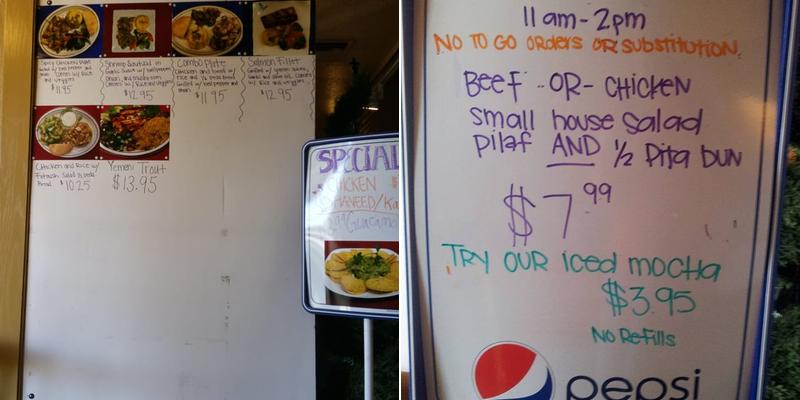 Spicy Chicken Plate
$11.95
Shrimp & Seafood in
Garlic Sauce w/ bell pepper
$12.95
Combo Plate
Chicken and beef w/
$11.95
Salmon Fillet
$12.95
Chicken and Rice w/
Fattoush Salad
Bread $10.25
Yemeni Trout
$13.95
SPECIAL
CHICKEN $
HANEED/Ka
Guacamo
11am-2pm
NO TO GO ORDERS OR SUBSTITUTION.
BEEF -OR- CHICKEN
small house salad
pilaf AND 1/2 Pita BUN
$7.99
TRY OUR iced mocha
$3.95
NO Refills
pepsi